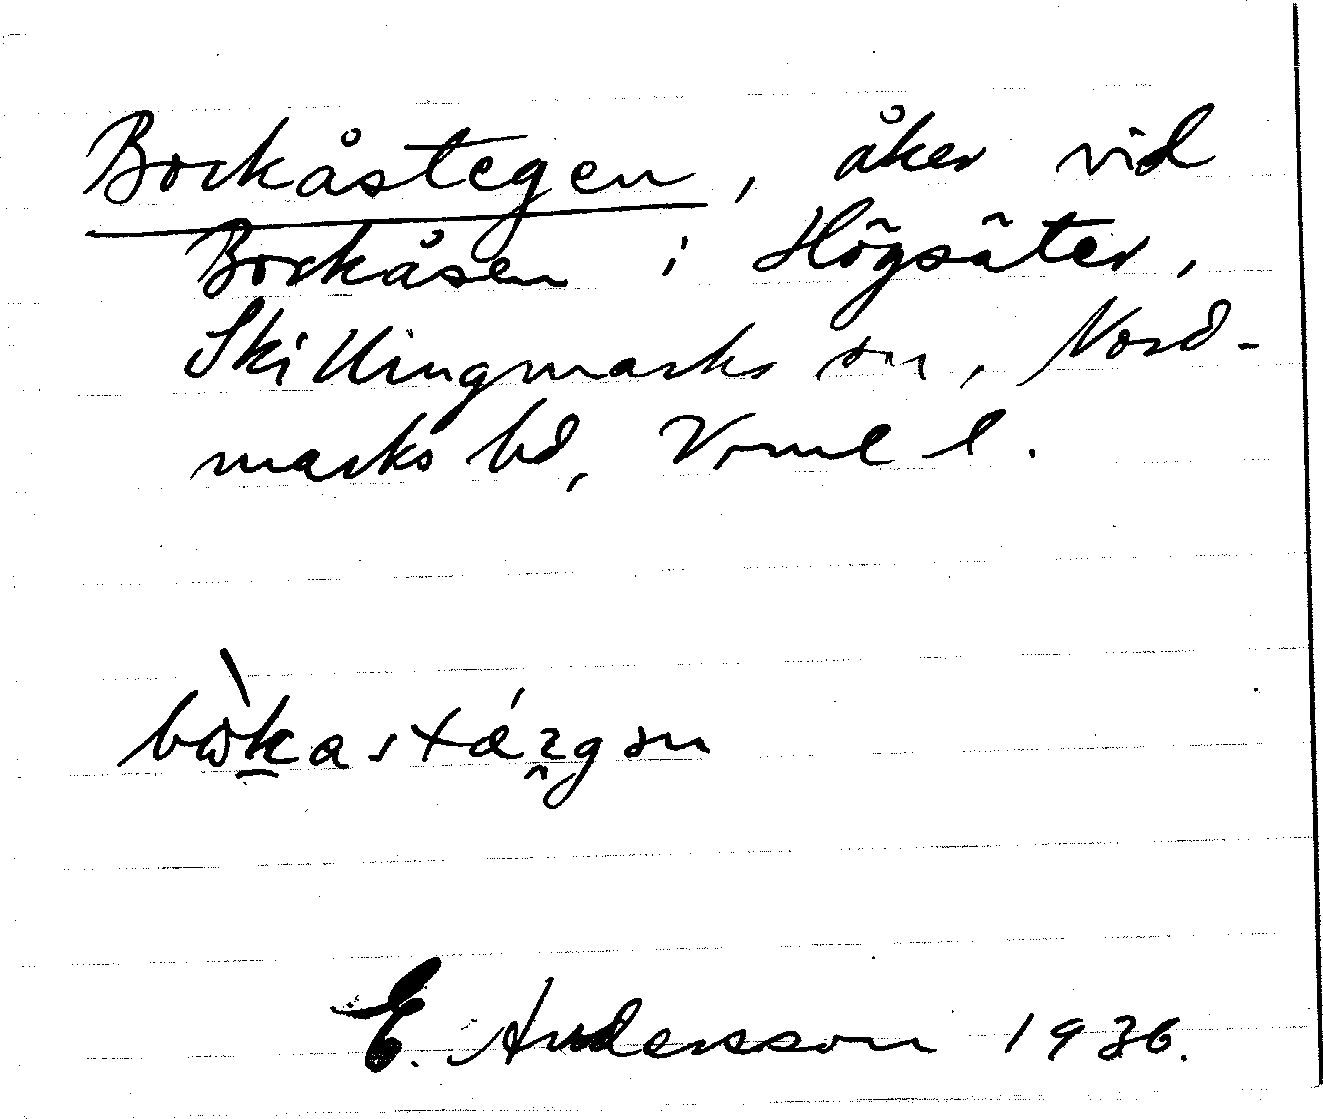 Bockåstegen, åker vid
Bockåsen i Högsäter,
Skillingmarks sn, Nord-
marks hd, Vrml l.
E. Andersson 1936.